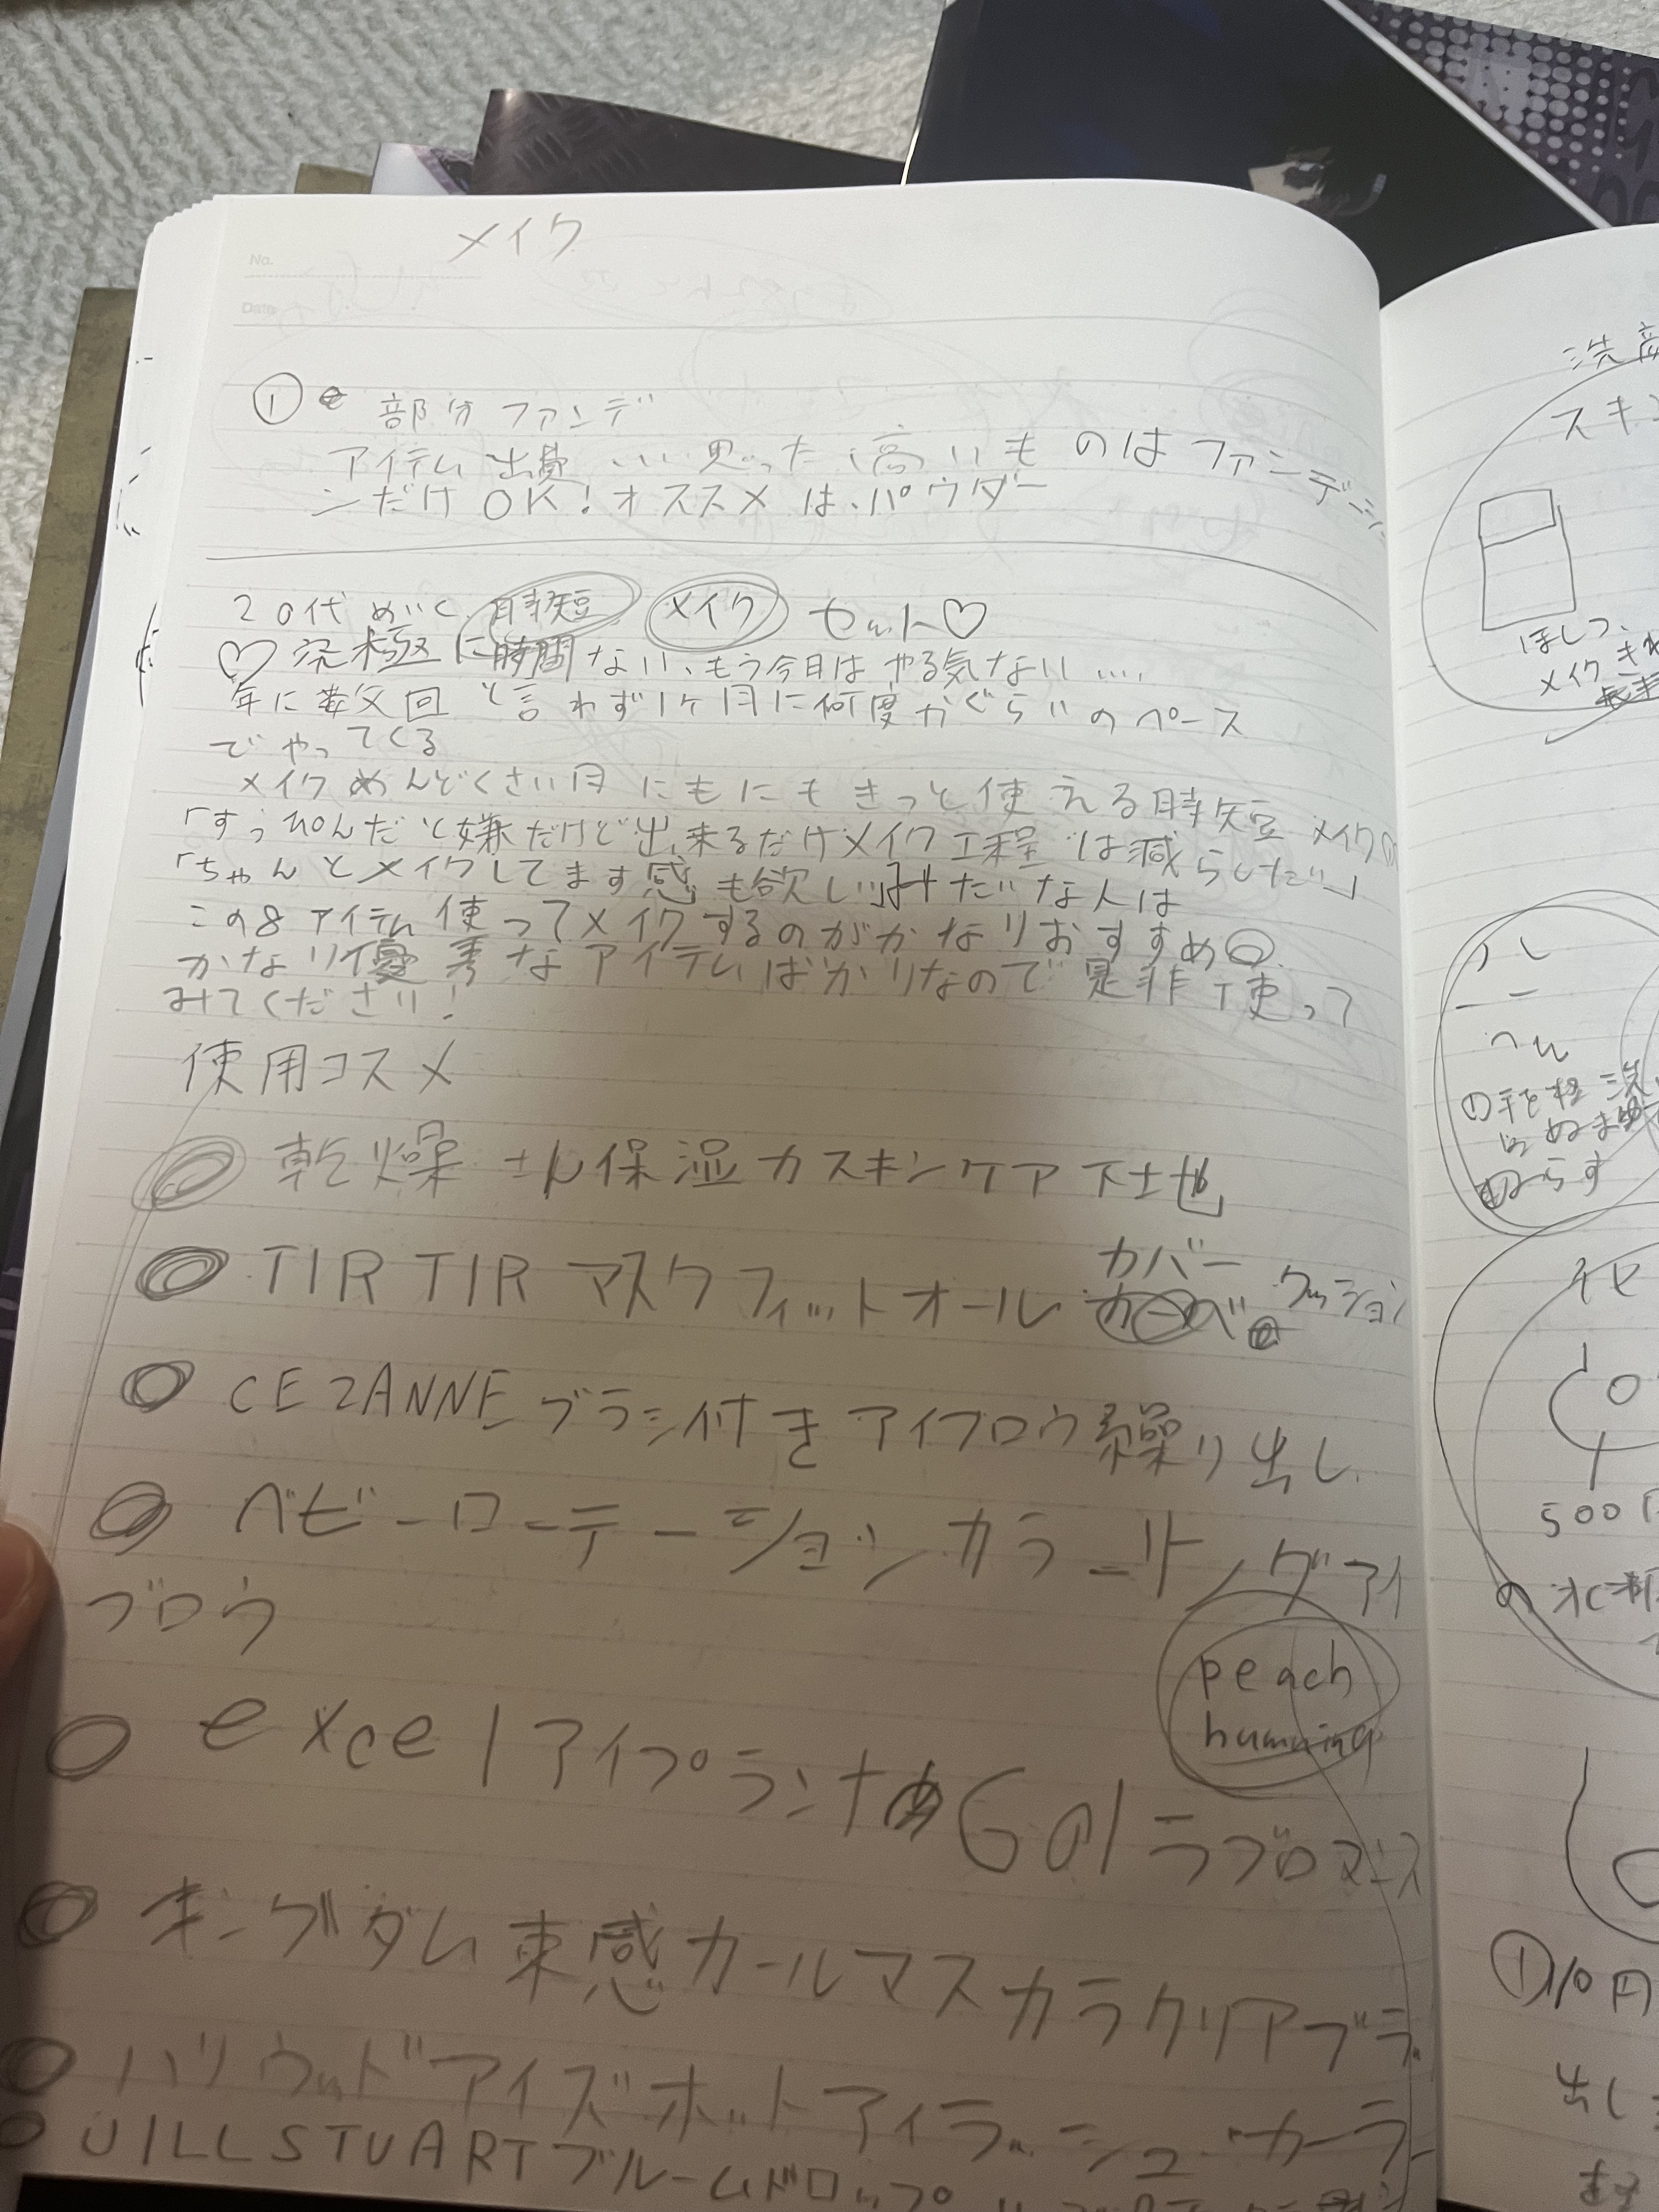 メイク
No.
Date
① 部分ファンデ
アイテム出費 いい思った高いものはファンデーショ
ンだけOK!オススメは、パウダー
20代めいく時短 メイク セット♡
♡究極に時間ない、もう今日はやる気ない....
年に数回と言わず1ヶ月に何度かぐらいのペース
でやってくる
メイクめんどくさい日にもにもきっと使える時短メイク
「すっぴんだと嫌だけど出来るだけメイク工程は減らしたい」
「ちゃんとメイクしてます感も欲しい」みたいな人は
この8アイテム使ってメイクするのがかなりおすすめ
かなり優秀なアイテムばかりなので是非使って
みてください!
使用コスメ
乾燥さん保湿力スキンケア下地
TIRTIR マスクフィットオールカバークッション
CEZANNE ブラシ付きアイブロウ繰り出し
ヘビーローテーションカラーリングアイ
ブロウ
peach
humming
excel アイプランナー G01 ラブロマンス
キングダム束感カールマスカラクリアブラ
ハリウッドアイズホットアイラッシュカーラー
JILLSTUARTブルームドロップ
洗顔
スキン
ほしつ
メイク
①手を軽
ぬらす
500
①10円
出し